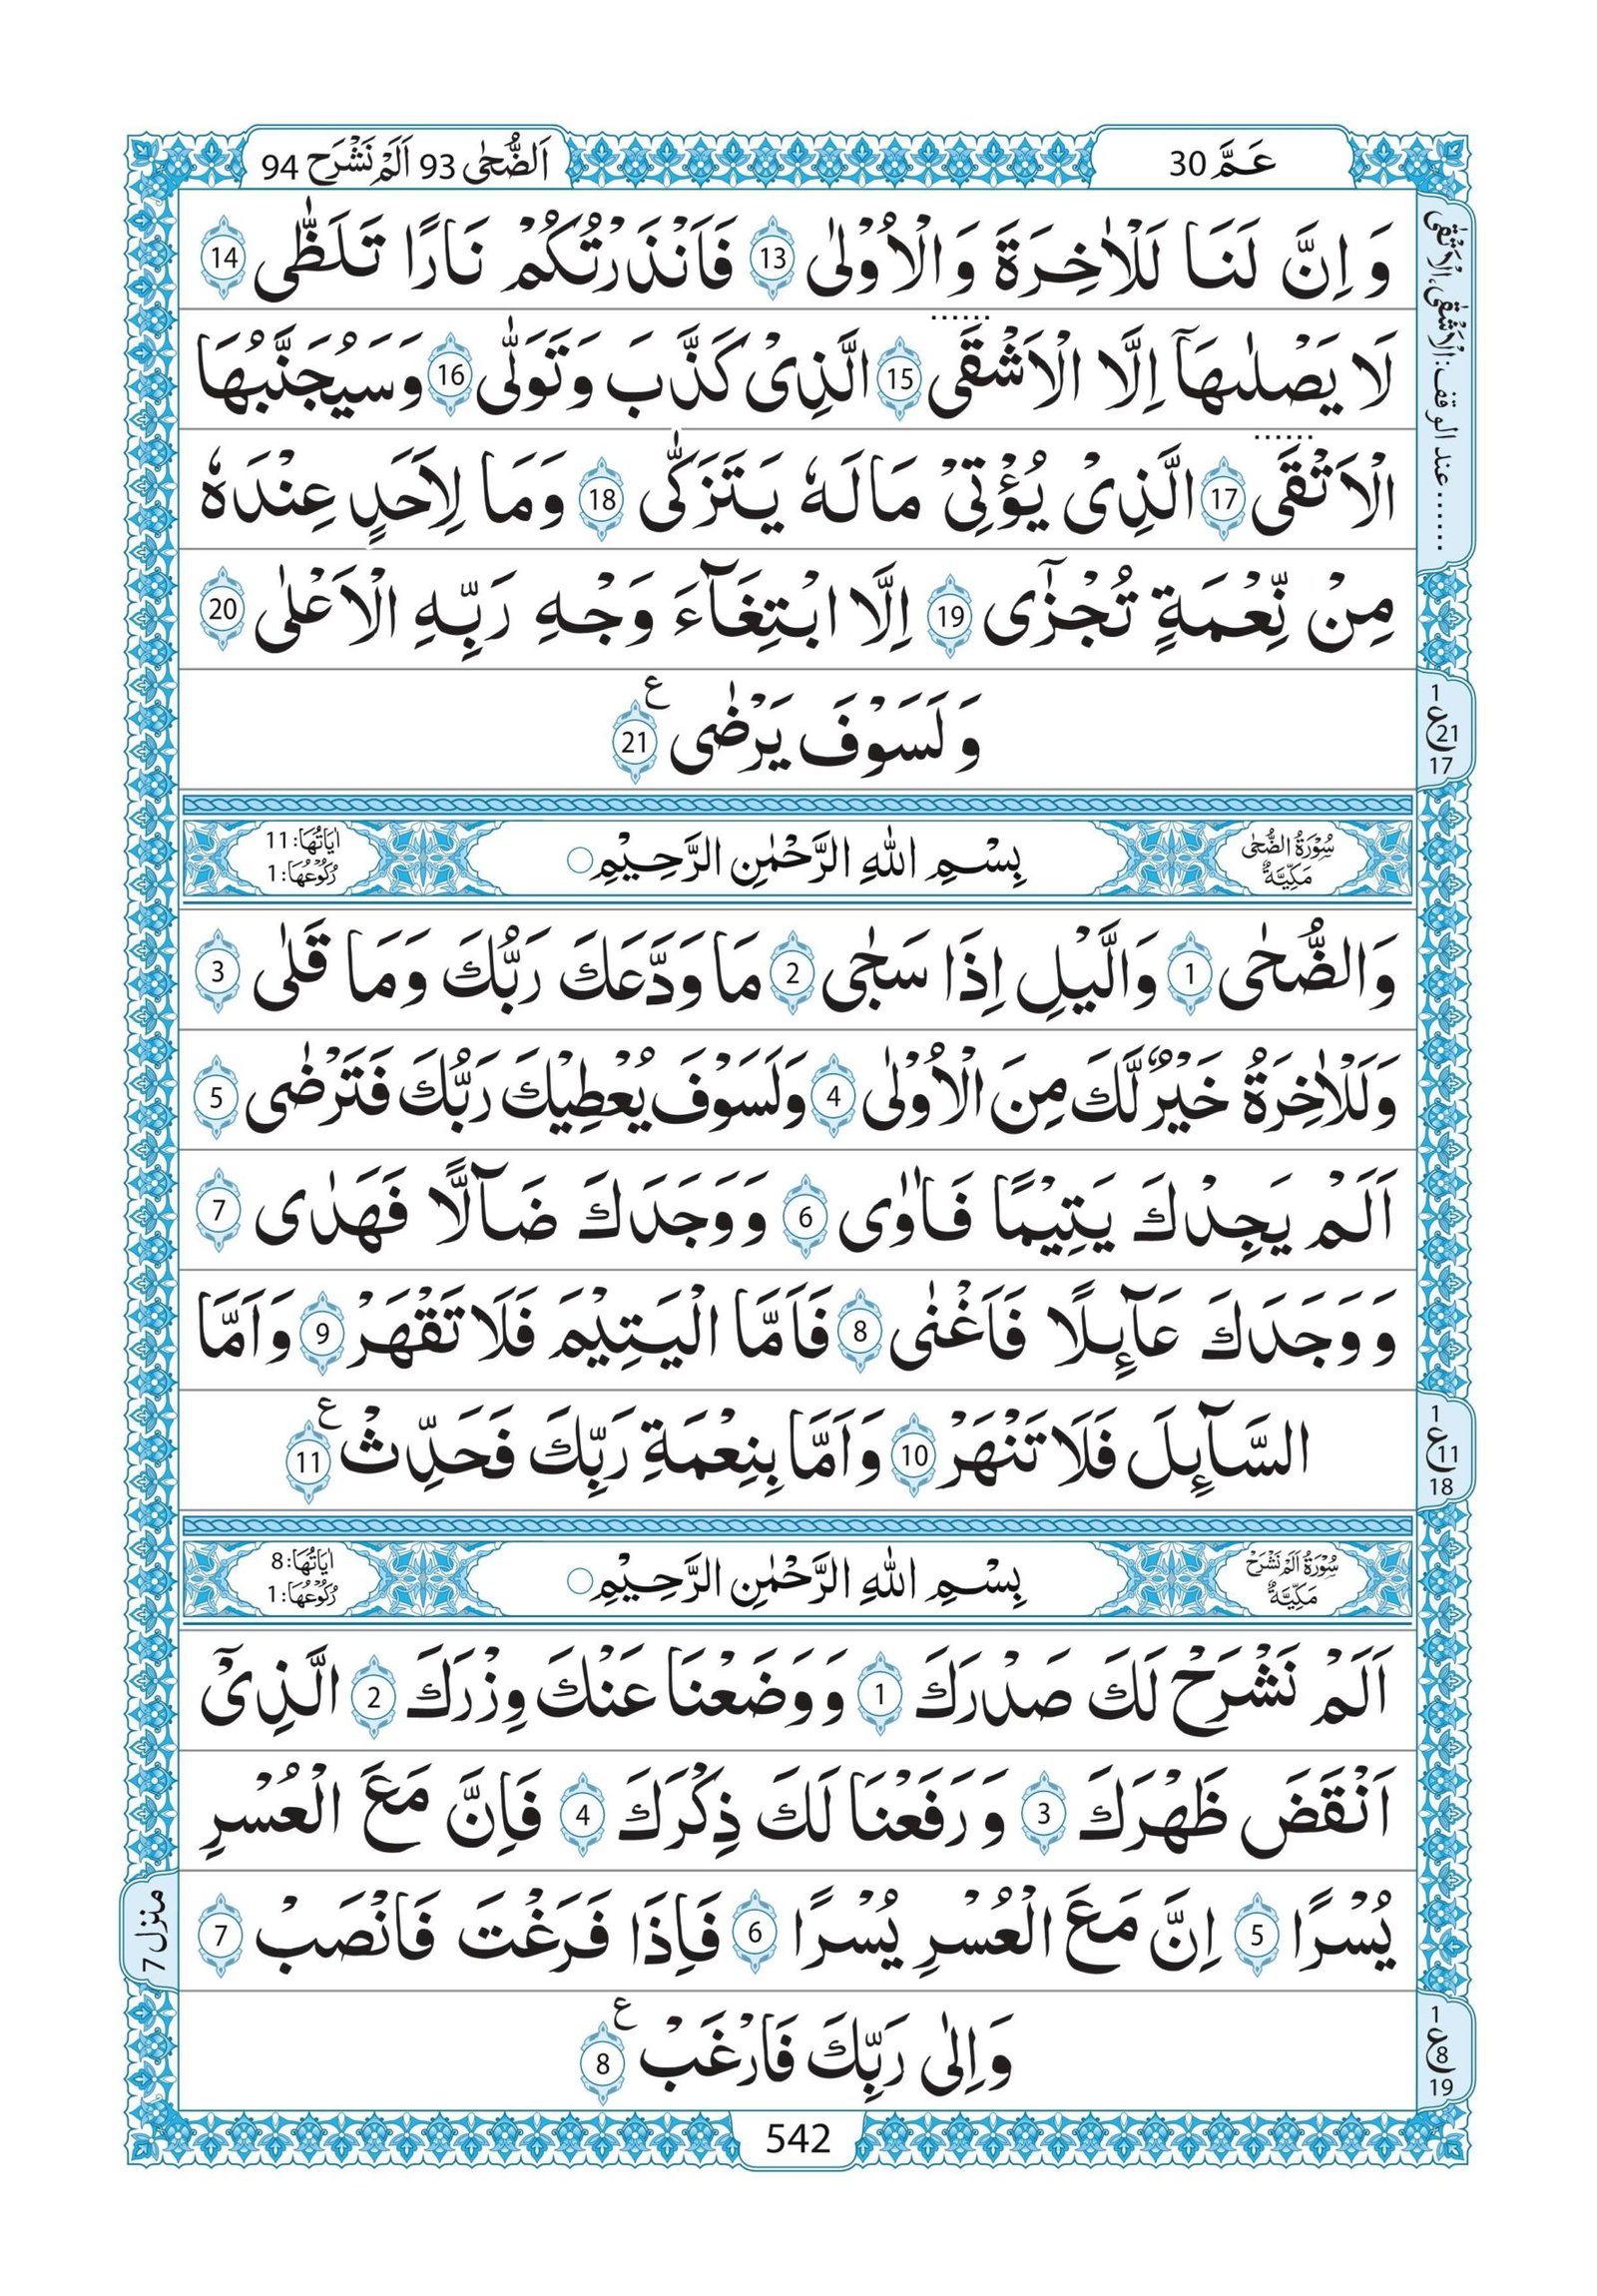 عَمَّ 30
اَلضُّحٰى 93 اَلَمْ نَشْرَح 94
وَ اِنَّ لَنَا لَلْاٰخِرَةَ وَ الْاُوْلٰى 13 فَاَنْذَرْتُكُمْ نَارًا تَلَظّٰى 14
لَا يَصْلٰىهَاۤ اِلَّا الْاَشْقَى 15 الَّذِىْ كَذَّبَ وَ تَوَلّٰى 16 وَ سَيُجَنَّبُهَا
الْاَتْقَى 17 الَّذِىْ يُؤْتِىْ مَالَهٗ يَتَزَكّٰى 18 وَ مَا لِاَحَدٍ عِنْدَهٗ
مِنْ نِّعْمَةٍ تُجْزٰٓى 19 اِلَّا ابْتِغَآءَ وَجْهِ رَبِّهِ الْاَعْلٰى 20
وَ لَسَوْفَ يَرْضٰى ع 21
سُوْرَةُ الضُّحٰى مَكِّيَّةٌ
بِسْمِ اللهِ الرَّحْمٰنِ الرَّحِيْمِ
اٰيَاتُهَا: 11
رُكُوْعُهَا: 1
وَالضُّحٰى 1 وَالَّيْلِ اِذَا سَجٰى 2 مَا وَدَّعَكَ رَبُّكَ وَ مَا قَلٰى 3
وَ لَلْاٰخِرَةُ خَيْرٌ لَّكَ مِنَ الْاُوْلٰى 4 وَ لَسَوْفَ يُعْطِيْكَ رَبُّكَ فَتَرْضٰى 5
اَلَمْ يَجِدْكَ يَتِيْمًا فَاٰوٰى 6 وَ وَجَدَكَ ضَآلًّا فَهَدٰى 7
وَ وَجَدَكَ عَآئِلًا فَاَغْنٰى 8 فَاَمَّا الْيَتِيْمَ فَلَا تَقْهَرْ 9 وَ اَمَّا
السَّآئِلَ فَلَا تَنْهَرْ 10 وَ اَمَّا بِنِعْمَةِ رَبِّكَ فَحَدِّثْ ع 11
سُوْرَةُ اَلَمْ نَشْرَحْ مَكِّيَّةٌ
بِسْمِ اللهِ الرَّحْمٰنِ الرَّحِيْمِ
اٰيَاتُهَا: 8
رُكُوْعُهَا: 1
اَلَمْ نَشْرَحْ لَكَ صَدْرَكَ 1 وَ وَضَعْنَا عَنْكَ وِزْرَكَ 2 الَّذِىْۤ
اَنْقَضَ ظَهْرَكَ 3 وَ رَفَعْنَا لَكَ ذِكْرَكَ 4 فَاِنَّ مَعَ الْعُسْرِ
يُسْرًا 5 اِنَّ مَعَ الْعُسْرِ يُسْرًا 6 فَاِذَا فَرَغْتَ فَانْصَبْ 7
وَ اِلٰى رَبِّكَ فَارْغَبْ ع 8
عند الوقف: الْاَشْقٰى، الْاَتْقٰى
1 ع 21 17
1 ع 11 18
1 ع 8 19
منزل 7
542